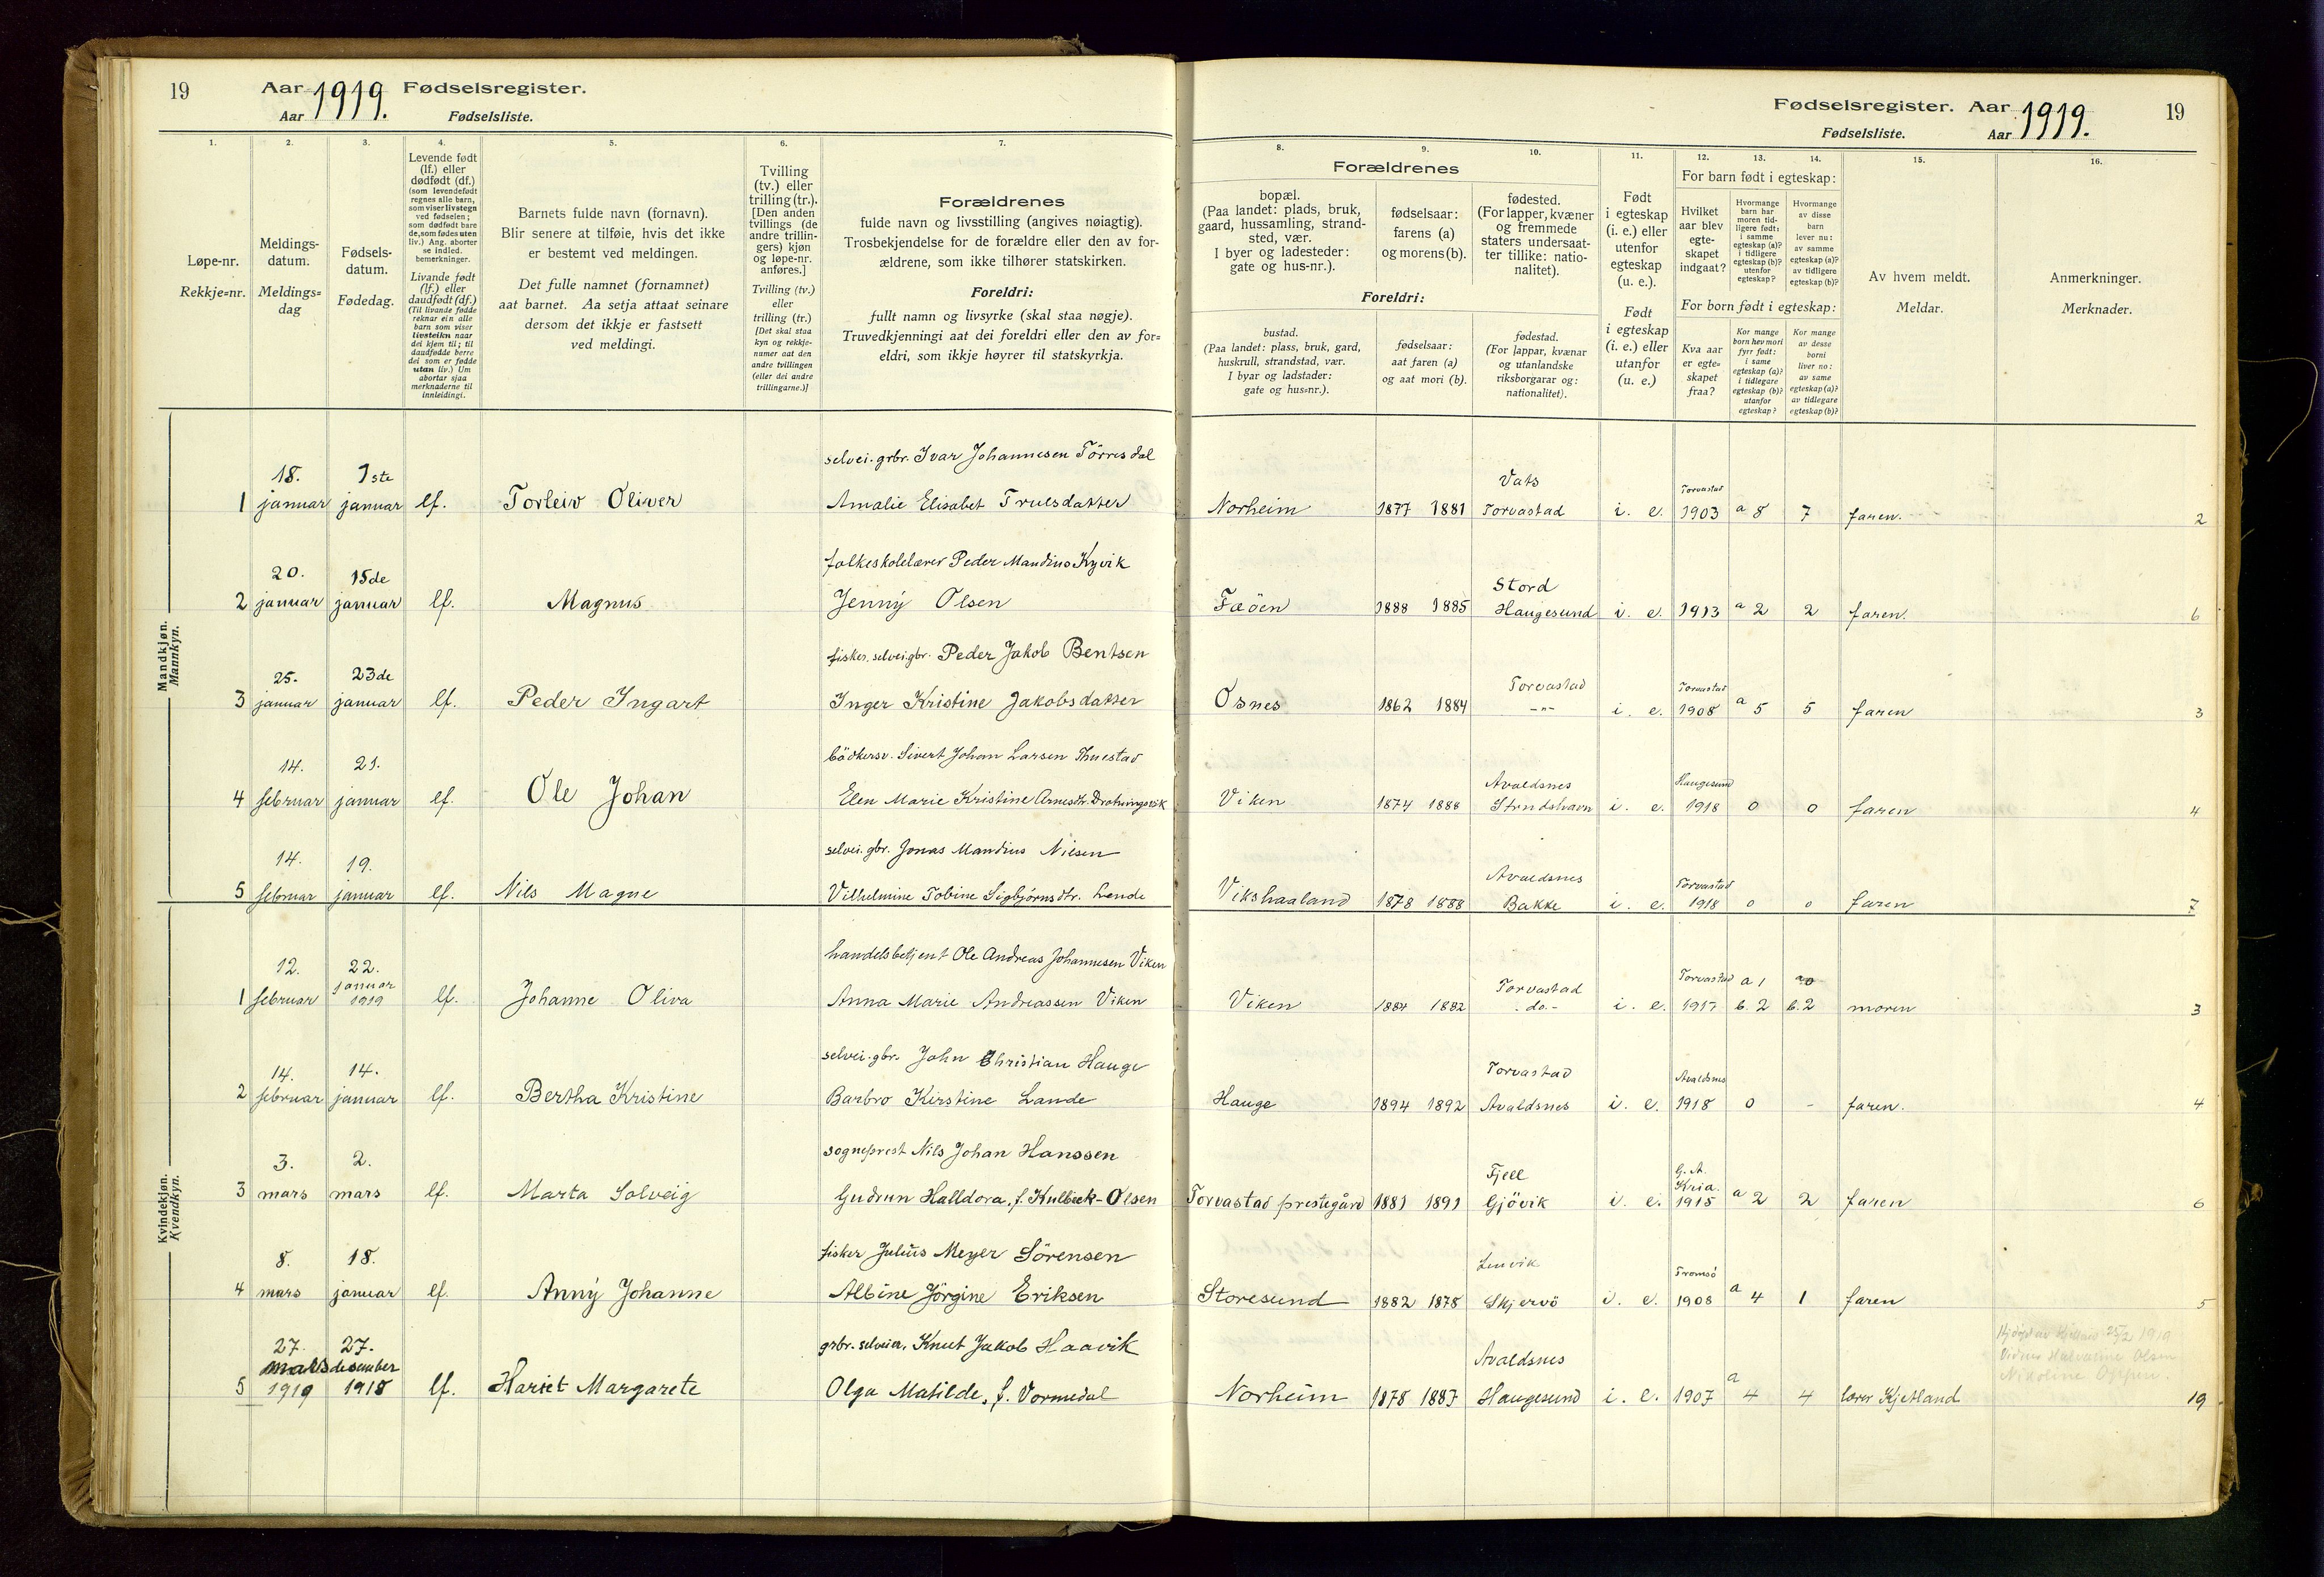 19 Aar 1919. Fødselsregister.
Aar Fødselsliste.
Fødselsregister. Aar 1919. 19
Fødselsliste. Aar
1. 2. 3. 4. 5. 6. 7.
8. 9. 10. 11. 12. 13. 14. 15. 16.
Løpe-nr.
Rekkje=nr.
Meldings-
datum.
Meldings=
dag
Fødsels-
datum.
Fødedag.
Levende født
(lf.) eller
dødfødt (df.)
(som levendefødt
regnes alle barn,
som viser livstegn
ved fødselen;
som dødfødt bare
de, som fødes uten
liv.) Ang. aborter
se indled.
bemerkninger.
Livande født
(lf.) eller
daudfødt (df.)
(Til livande fødde
reknar ein alle
barn som viser
livsteikn naar
dei kjem til; til
daudfødde berre
dei som er fødde
utan liv.) Um
abortar sjaa
merknaderne til
innleidingi.
Barnets fulde navn (fornavn).
Blir senere at tilføie, hvis det ikke
er bestemt ved meldingen.
Det fulle namnet (fornamnet)
aat barnet. Aa setja attaat seinare
dersom det ikkje er fastsett
ved meldingi.
Tvilling
(tv.) eller
trilling (tr.).
[Den anden
tvillings (de
andre trillin-
gers) kjøn
og løpe-nr.
anføres.]
Tvilling (tv.)
eller
trilling (tr.)
[Det skal staa
kyn og rekkje-
numer aat den
andre tvillingen
(eller dei andre
trillingarne.)]
Forældrenes
fulde navn og livsstilling (angives nøiagtig).
Trosbekjendelse for de forældre eller den av for-
ældrene, som ikke tilhører statskirken.
Foreldri:
fullt namn og livsyrke (skal staa nøgje).
Truvedkjenningi aat dei foreldri eller den av for=
eldri, som ikkje høyrer til statskyrkja.
Forældrenes
bopæl.
(Paa landet: plads, bruk,
gaard, hussamling, strand-
sted, vær.
I byer og ladesteder:
gate og hus-nr.).
fødselsaar:
farens (a)
og morens (b).
fødested.
(For lapper, kvæner
og fremmede
staters undersaat-
ter tillike: natio-
nalitet).
Foreldri:
bustad.
(Paa landet: plass, bruk, gard,
huskrull, strandstad, vær.
I byar og ladstader:
gate og hus=nr.).
fødselsaar:
aat faren (a)
og aat mori (b).
fødestad.
(For lappar, kvænar
og utanlandske
riksborgarar og:
nationalitet).
Født
i egteskap
(i. e.) eller
utenfor
egteskap
(u. e.).
Født
i egteskap
(i. e.) eller
utanfor
(u. e.)
For barn født i egteskap:
Hvilket
aar blev
egte-
skapet
indgaat?
Hvormange
barn har
moren tid-
ligere født:
i samme
egteskap (a)?
i tidligere
egteskap (b)?
utenfor
egteskap?
Hvormange
av disse
barn
lever nu:
av samme
egteskap (a)?
av tidligere
egteskap (b)?
For born født i egteskap:
Kva aar
er egte-
skapet
fraa?
Kor mange
born hev mori
fyrr født:
i same
egteskap (a)?
i tidlegare
egteskap (b)?
utanfor
egteskap?
Kor mange
av desse
borni
liver no:
av same
egteskap (a)?
av tidlegare
egteskap (b)?
Av hvem meldt.
Meldar.
Anmerkninger.
Merknader.
Mandkjøn.
Mannkyn.
18. 1ste selvei. grbr. Ivar Johannesen Törresdal Vats Torvastad
1 januar januar lf. Torleiv Oliver Amalie Elisabet Truls datter Norheim 1877 1881 Torvastad i. e. 1903 a 8 7 faren. 2
20. 15de folkeskolelærer Peder Mandius Kyvik Stord
2 januar januar lf. Magnus Jenny Olsen Fæöen 1888 1885 Haugesund i. e. 1913 a 2 2 faren. 6
25. 23de fisker. selvei. gbr. Peder Jakob Bentsen Torvastad Torvastad
3 januar januar lf. Peder Ingart Inger Kristine Jakobsdatter Osnes 1862 1884 -"- i. e. 1908 a 5 5 faren 3
14. 21. bödkersv. Sivert Johan Larsen Thuestad Avaldsnes Haugesund
4 februar januar lf. Ole Johan Elen Marie Kristine Viken 1874 1888 i. e. 1918 0 0 faren 4
14. 19. selvei. gbr. Jonas Mandius Nilsen Avaldsnes Torvastad
5 februar januar lf. Nils Magne Vilhelmine Tobine Sigbjörnsdtr. Lende Vikshaaland 1878 1888 Bakke i. e. 1918 0 0 faren 7
Kvindekjøn.
Kvendkyn.
12. 22. handelsbetjent Ole Andreas Johannesen Viken Torvastad Torvastad a 1
1 februar januar 1919 lf. Johanne Oliva Anna Marie Andreassen Viken Viken 1884 1882 -do.- i. e. 1917 b. 2 b. 2 moren 3
14. 14. selvei. gbr. John Christian Hauge Torvastad Avaldsnes
2 februar januar lf. Bertha Kristine Barbro Kirstine Lande Hauge 1894 1892 Avaldsnes i. e. 1918 0 - faren. 4
3. 2. sogneprest Nils Johan Hanssen Fjell G. A. Kria.
3 mars mars lf. Marta Solveig Gudrun Halldora, f. Kulbeck-Olsen Torvastad prestegård 1881 1891 Gjövik i. e. 1915 a 2 2 faren 6
8. 18. fisker Julius Meyer Sörensen Lenvik Tromsö
4 mars januar lf. Anny Johanne Albine Jörgine Eriksen Storesund 1882 1878 Skjervö i. e. 1908 a 4 1 faren 5
27. 27. grbr. selveier, Knut Jakob Haavik Avaldsnes
5 mars 1919 desember 1918 lf. Hariet Margarete Olga Matilde, f. Vormedal Norheim 1878 1887 Haugesund i. e. 1907 a 4 4 lærer Kjetland 19